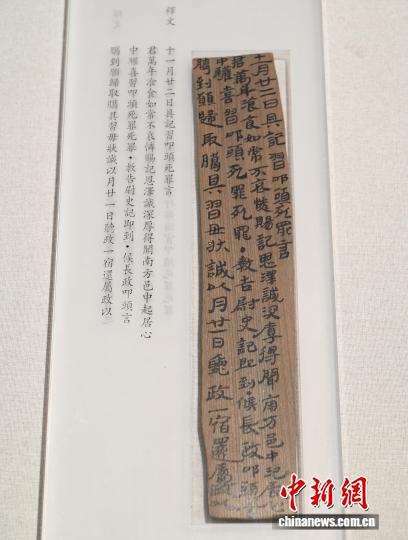 十一月廿二日具記習叩頭死罪言
君萬年湌食如常不哀憐賜記恩澤誠深厚得聞南方邑中起居心
中驩喜習叩頭死罪死罪·教告尉史記即到·候長政叩頭言
騰到願歸取騰具習毋狀誠以月廿一日聽政一宿還屬政以
釋文
十一月廿二日具記習叩頭死罪言
君萬年湌食如常不哀憐賜記恩澤誠深厚得聞南方邑中起居心
中驩喜習叩頭死罪死罪·教告尉史記即到·候長政叩頭言
騰到願歸取騰具習毋狀誠以月廿一日聽政一宿還屬政以
中新網
chinanews.com.cn